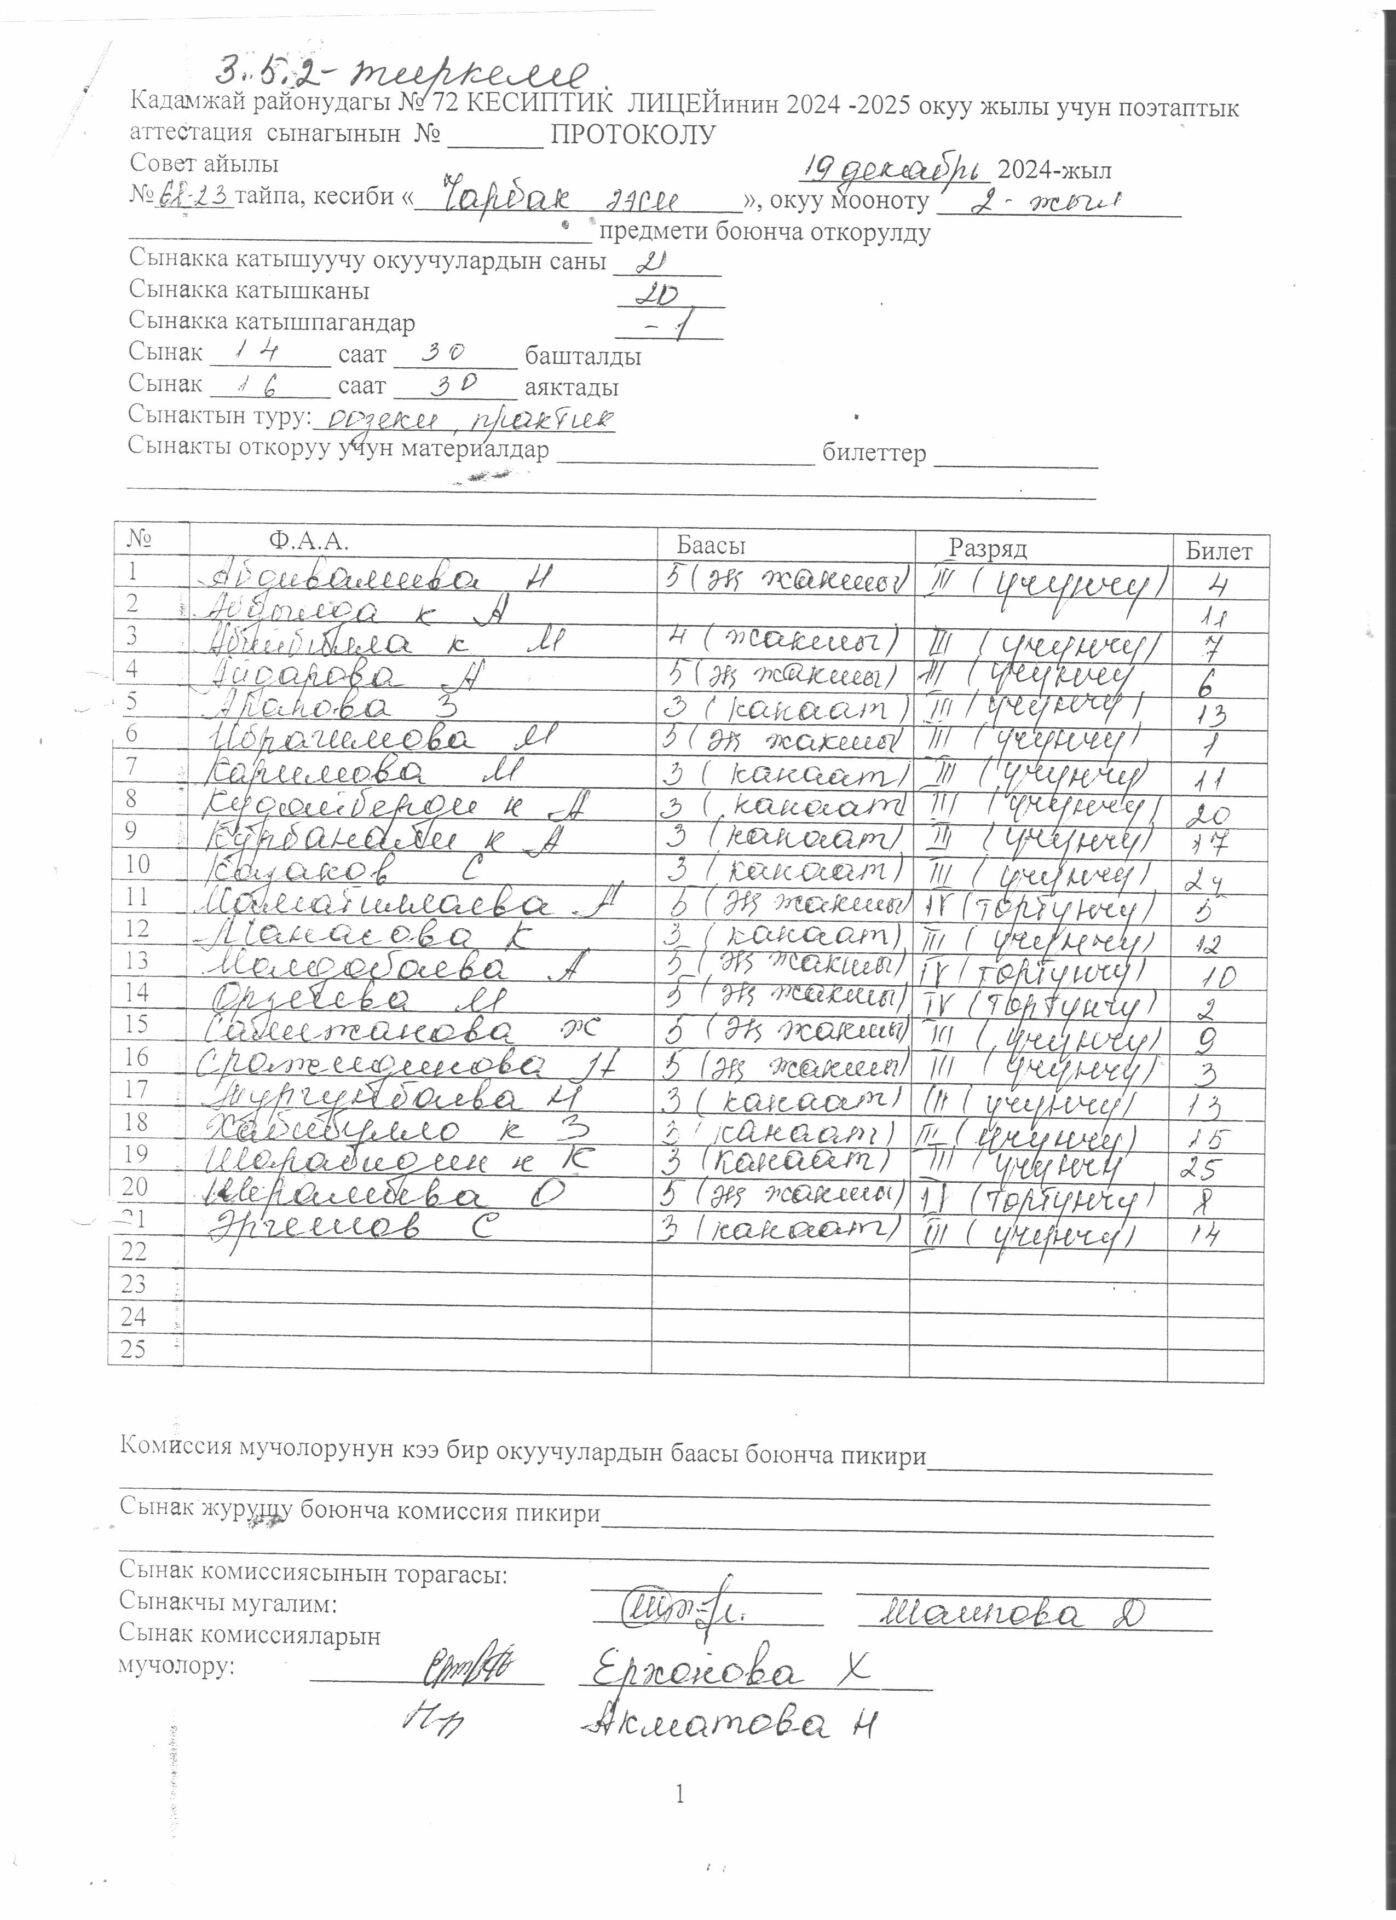 3.5.2- тиркеме.
Кадамжай районудагы № 72 КЕСИПТИК ЛИЦЕЙинин 2024 -2025 окуу жылы учун поэтаптык
аттестация сынагынын № _______ ПРОТОКОЛУ
Совет айылы 19 декабрь 2024-жыл
№ 68-23 тайпа, кесиби « Чарбак ээси », окуу мооноту 2 - жыл
предмети боюнча откорулду
Сынакка катышуучу окуучулардын саны 21
Сынакка катышканы 20
Сынакка катышпагандар - 1
Сынак 14 саат 30 башталды
Сынак 16 саат 30 аяктады
Сынактын туру: оозеки, практик
Сынакты откоруу учун материалдар ____________ билеттер ____________
№ Ф.А.А. Баасы Разряд Билет
1 Абдивалиева Н 5 (эң жакшы) III (учунчу) 4
2 Абдылда к А 11
3 Абибилла к М 4 (жакшы) III (учунчу) 7
4 Айдарова А 5 (эң жакшы) III (учунчу 6
5 Арапова З 3 (канаат) III (учунчу) 13
6 Ибрагимова М 5 (эң жакшы III (учунчу) 1
7 Каримова М 3 (канаат) III (учунчу) 11
8 Кудайберди к А 3 (канаат III (учунчу) 20
9 Курбанали к А 3 (канаат) III (учунчу) 17
10 Козаков С 3 (канаат) III (учунчу) 24
11 Маматиллаева А 5 (эң жакшы) IV (тортунчу) 5
12 Манасова К 3 (канаат) III (учунчу) 12
13 Молдобаева А 5 (эң жакшы) IV (тортунчу) 10
14 Орзуева М 5 (эң жакшы) IV (тортунчу) 2
15 Сабижанова Ж 5 (эң жакшы) III (учунчу) 9
16 Сражидинова Н 5 (эң жакшы) III (учунчу) 3
17 Тургунбаева Н 3 (канаат) III (учунчу) 13
18 Хабибулло к З 3 (канаат) III (учунчу) 15
19 Шарабидин к К 3 (канаат) III (учунчу 25
20 О 5 (эң жакшы) IV (тортунчу) 8
21 Эргешов С 3 (канаат) III (учунчу) 14
22
23
24
25
Комиссия мучолорунун кээ бир окуучулардын баасы боюнча пикири
Сынак журушу боюнча комиссия пикири
Сынак комиссиясынын торагасы:
Сынакчы мугалим: Шаипова Д
Сынак комиссияларын
мучолору: Ерхонова Х
Акматова Н
1